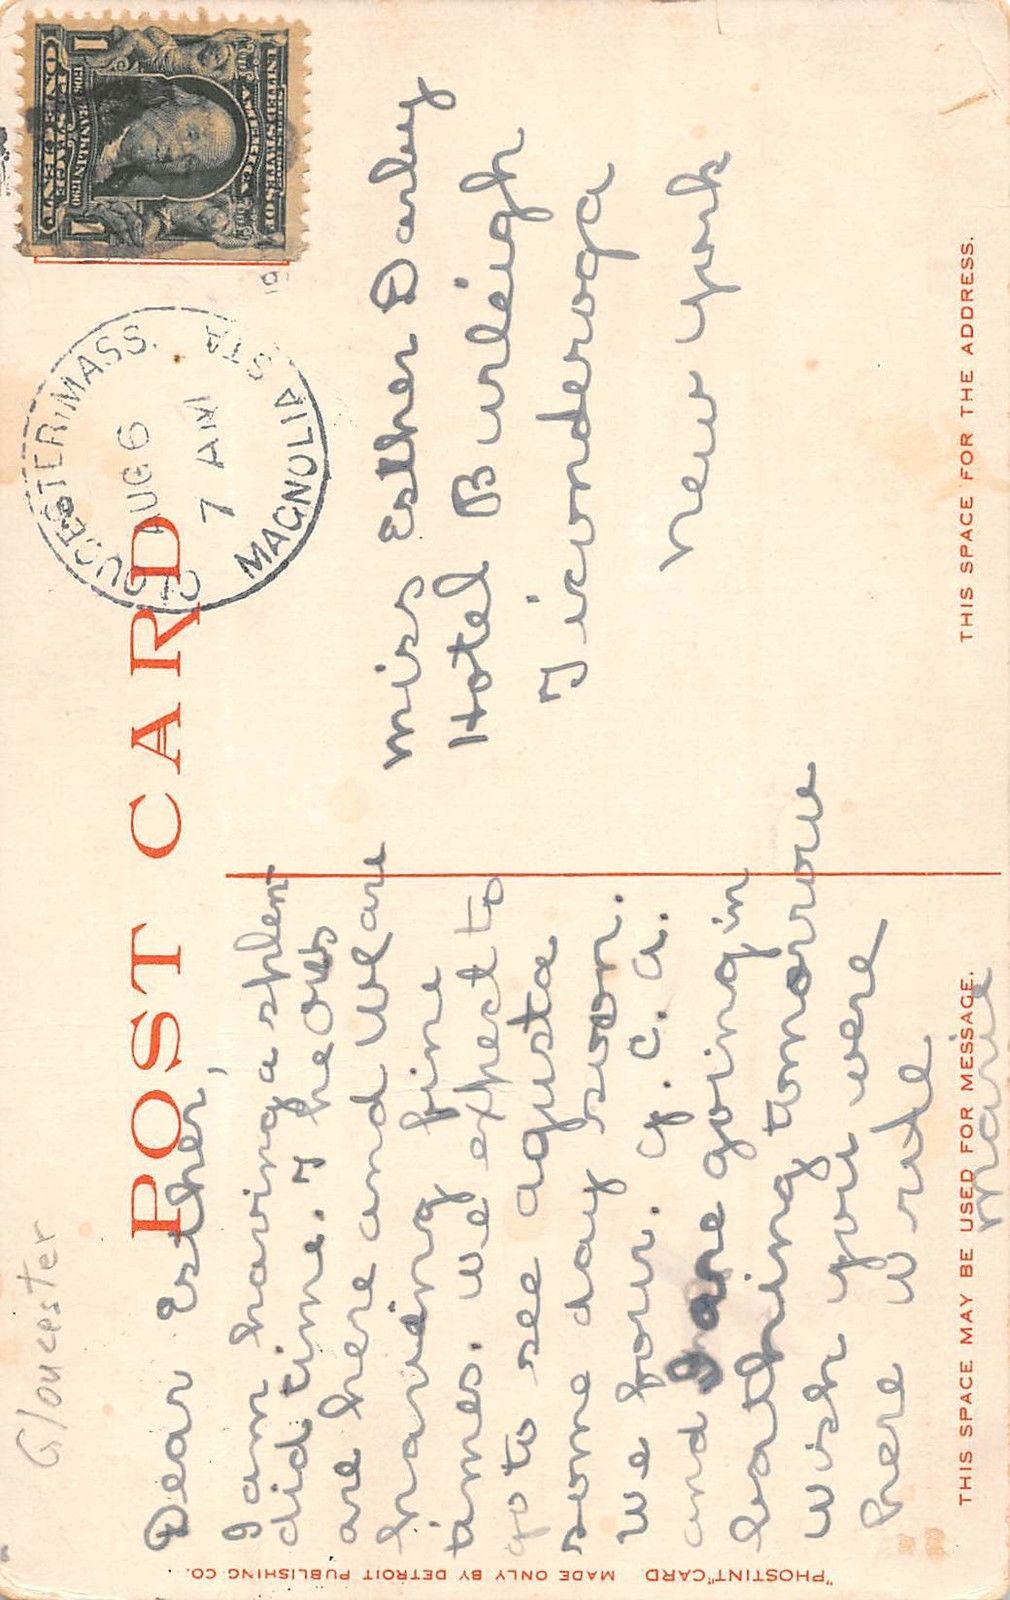 Gloucester
POST CARD
Dear Esther,
I am having a splen
did time. I heoes
are here and we are
haveing fine
times. we expect to
go to see agusta
some day soon.
We four. Y. C. A.
and I are going in
bathing tomorrow
wish you were
here write
marie
THIS SPACE MAY BE USED FOR MESSAGE.
"PHOSTINT" CARD MADE ONLY BY DETROIT PUBLISHING CO.
UNITED STATES OF AMERICA
POSTAGE
ONE CENT
1 1
GLOUCESTER, MASS.
AUG 6
7 AM
MAGNOLIA STA
miss Esther Darley
Hotel Burleigh
Ticonderoga
new york
THIS SPACE FOR THE ADDRESS.